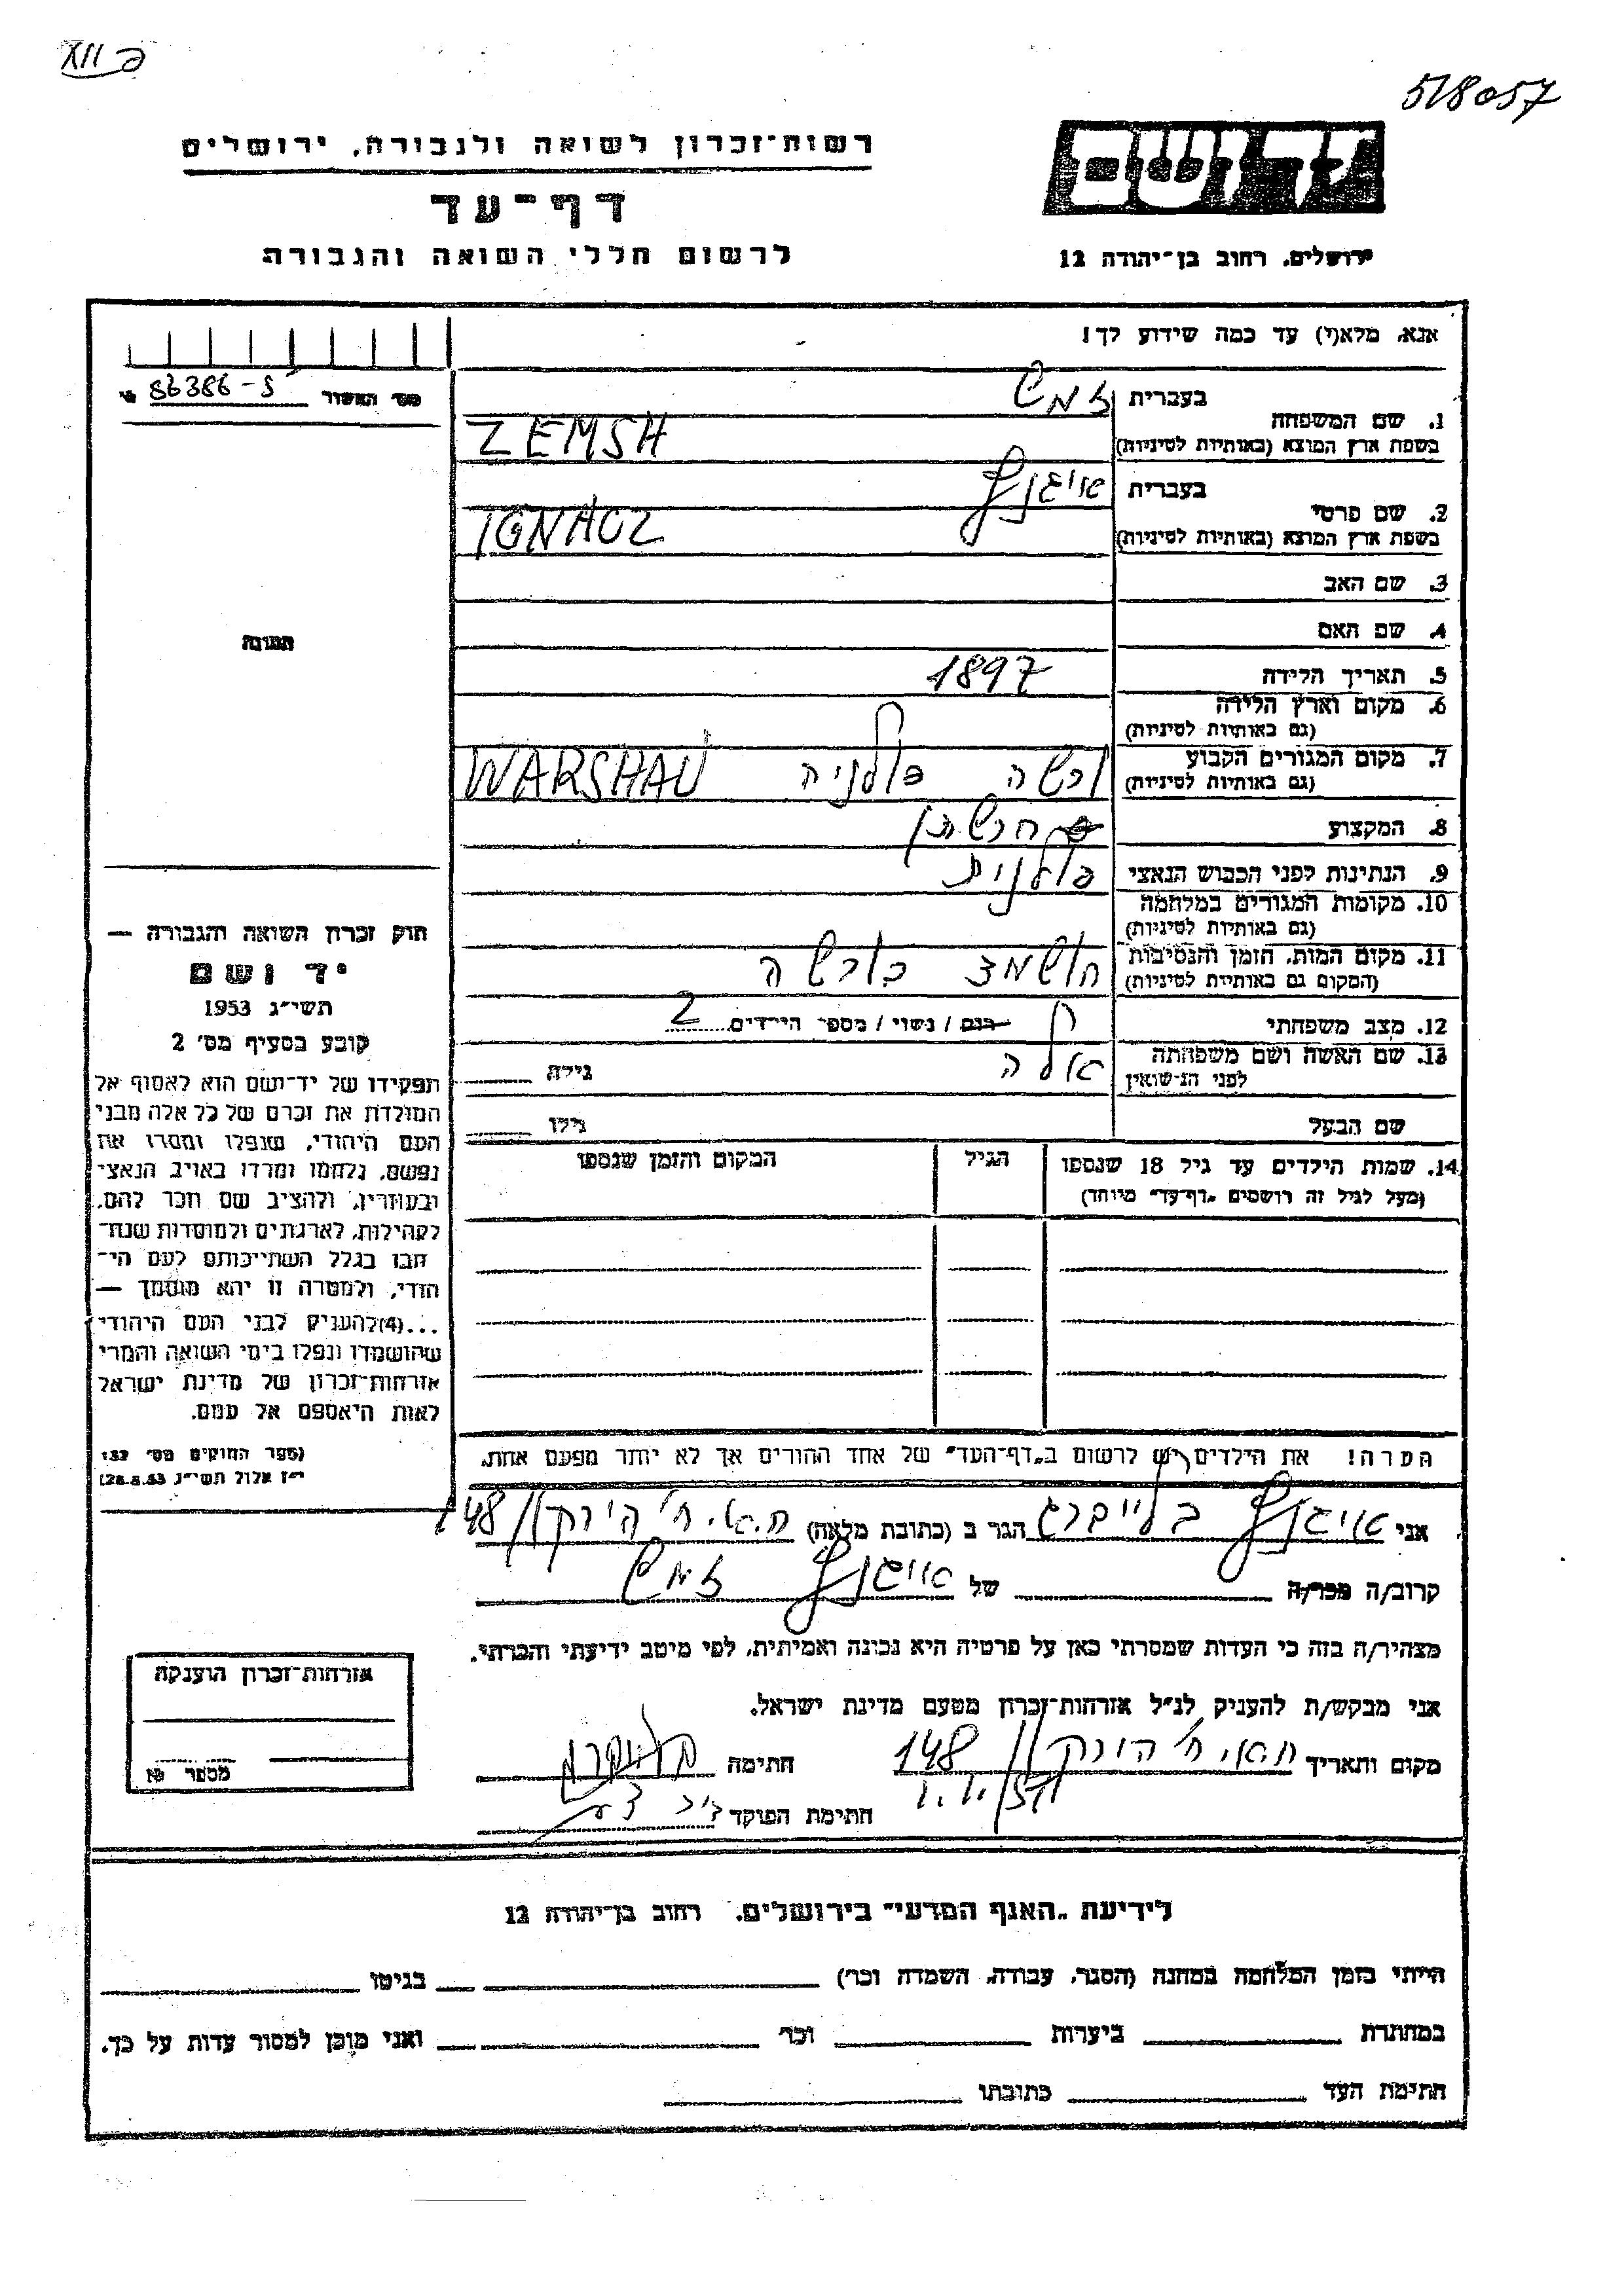 פ XII
518057
רשות־זכרון לשואה ולגבורה, ירושלים
דף־עד
לרשום חללי השואה והגבורה
יד ושם
ירושלים, רחוב בן־יהודה 12
אנא, מלא(י) עד כמה שידוע לך!
86386-S
1. שם המשפחה
בעברית זמש
בשפת ארץ המוצא (באותיות לטיניות) ZEMSH
2. שם פרטי
בעברית איגנץ
בשפת ארץ המוצא (באותיות לטיניות) IGNACZ
3. שם האב
4. שם האם
5. תאריך הלידה 1897
6. מקום וארץ הלידה
(גם באותיות לטיניות)
7. מקום המגורים הקבוע ורשה פולניה WARSHAU
(גם באותיות לטיניות)
8. המקצוע חרשתן
9. הנתינות לפני הכבוש הנאצי פולנית
10. מקומות המגורים במלחמה
(גם באותיות לטיניות)
11. מקום המות, הזמן והנסיבות הושמד בורשה
(המקום גם באותיות לטיניות)
12. מצב משפחתי רוק / נשוי / מספר הילדים 2
13. שם האשה ושם משפחתה אלה גילה
לפני הנישואין
שם הבעל גילו
14. שמות הילדים עד גיל 18 שנספו הגיל המקום והזמן שנספו
(מעל לגיל זה רושמים "דף־עד" מיוחד)
הערה! את הילדים יש לרשום ב"דף־העד" של אחד ההורים אך לא יותר מפעם אחת.
תמונה
חוק זכרון השואה והגבורה —
יד ושם
תשי"ג 1953
קובע בסעיף מס' 2
תפקידו של יד־ושם הוא לאסוף אל
המולדת את זכרם של כל אלה מבני
העם היהודי, שנפלו ומסרו את
נפשם, נלחמו ומרדו באויב הנאצי
ובעוזריו, ולהציב שם וזכר להם,
לקהילות, לארגונים ולמוסדות שנח־
רבו בגלל השתייכותם לעם הי־
הודי, ולמטרה זו יהא מוסמך —
...(4) להעניק לבני העם היהודי
שהושמדו ונפלו בימי השואה והמרי
אזרחות־זכרון של מדינת ישראל
לאות היאספם אל עמם.
(ספר החוקים מס' 132
י"ז אלול תשי"ג 28.8.53)
אני איגנץ בלייברג הגר ב (כתובת מלאה) ת.א. ח' הירקון 148
קרוב/ה מכר/ה של איגנץ זמש
מצהיר/ה בזה כי העדות שמסרתי כאן על פרטיה היא נכונה ואמיתית, לפי מיטב ידיעתי והכרתי.
אני מבקש/ת להעניק לנ"ל אזרחות־זכרון מטעם מדינת ישראל.
מקום ותאריך ת.א. ח' הירקון 148 חתימה
חתימת הפוקד
אזרחות־זכרון הוענקה
מספר
לידיעת "האגף המדעי" בירושלים, רחוב בן־יהודה 12
הייתי בזמן המלחמה במחנה (הסגר, עבודה, השמדה וכו') בגיטו
במחתרת ביערות וכו' ואני מוכן למסור עדות על כך.
חתימת העד כתובתו